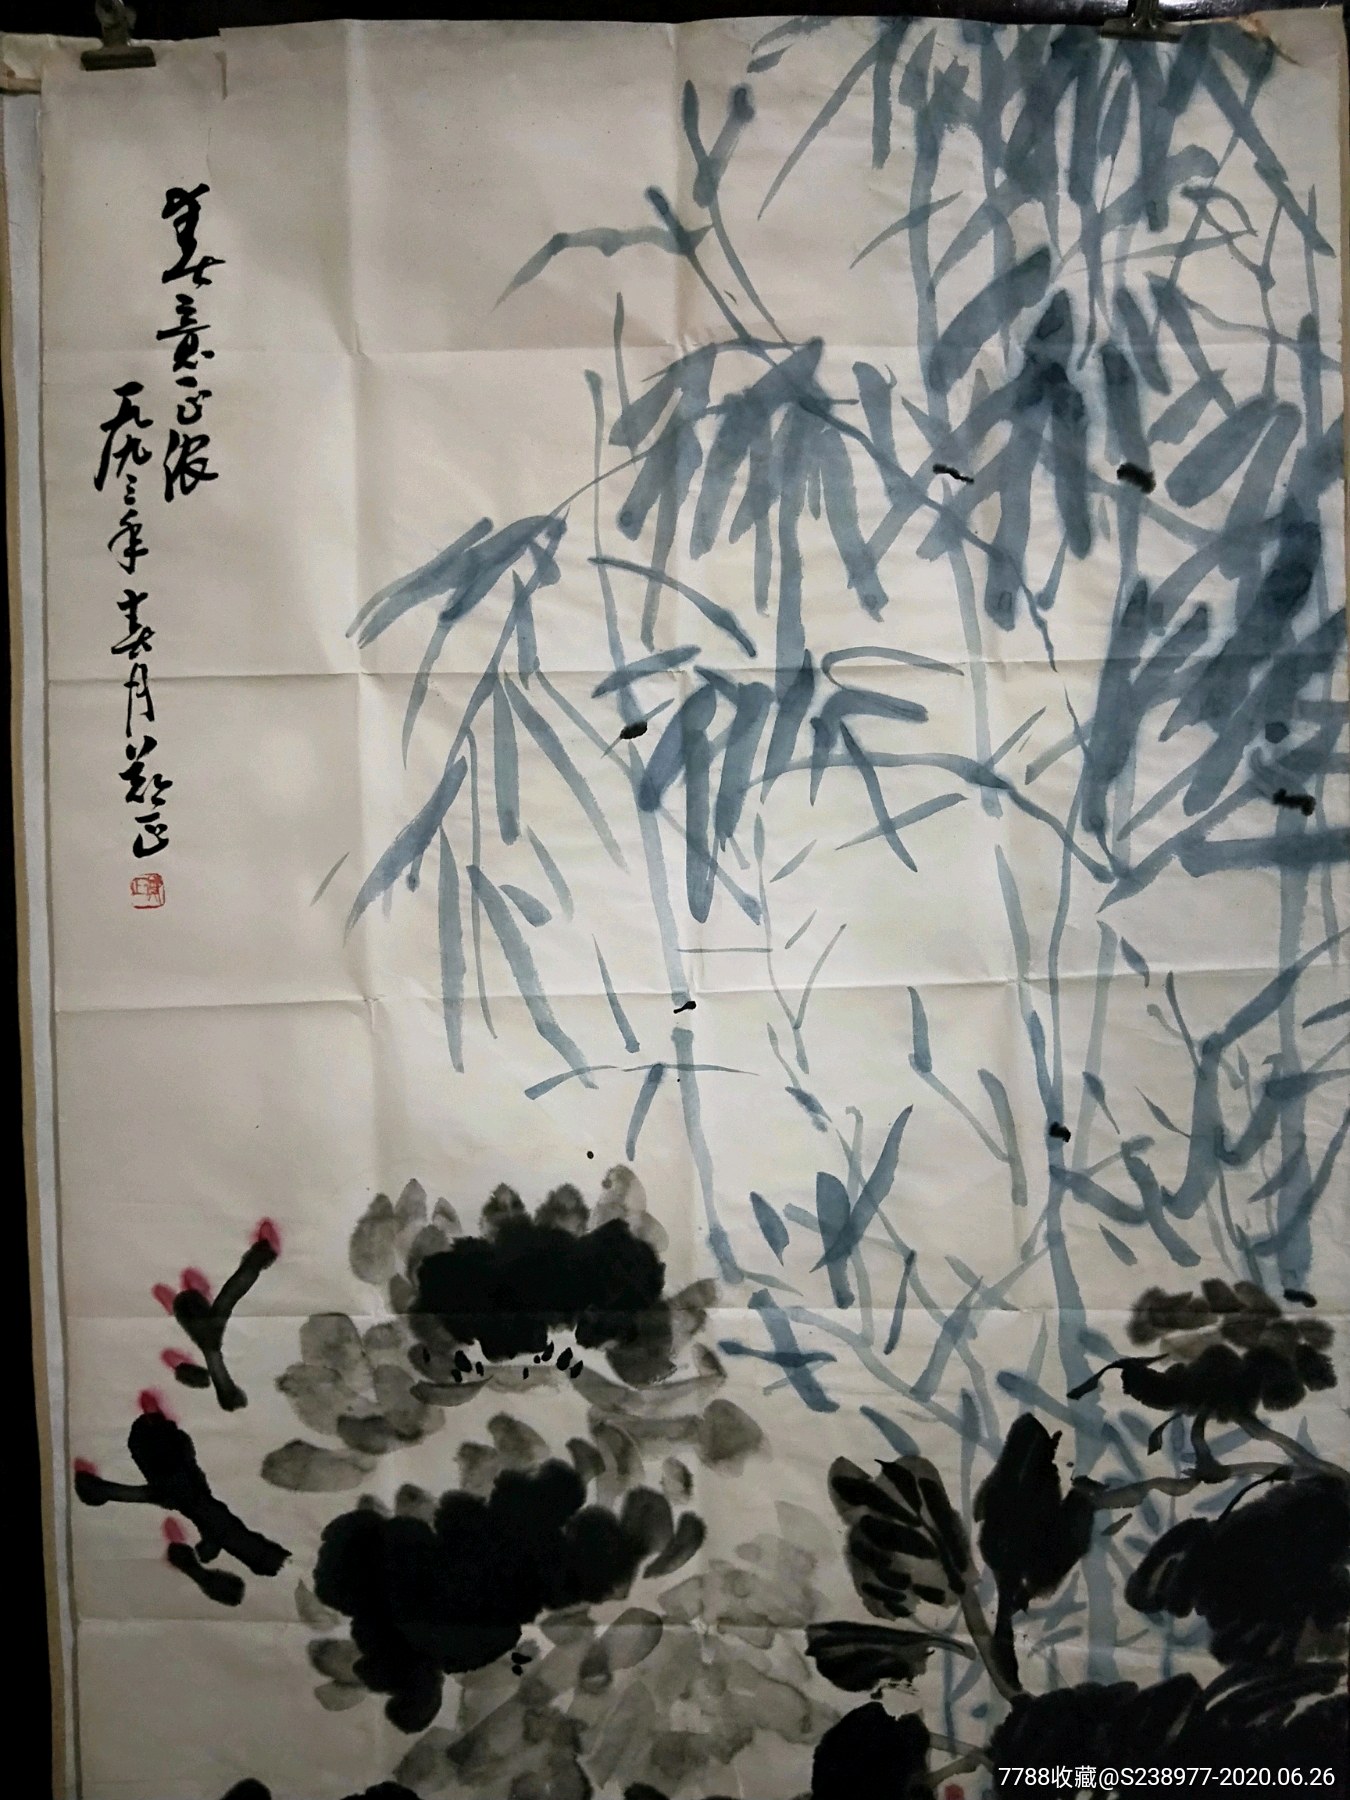 春意正浓
一九九三年春月郑正
7788收藏@S238977-2020.06.26